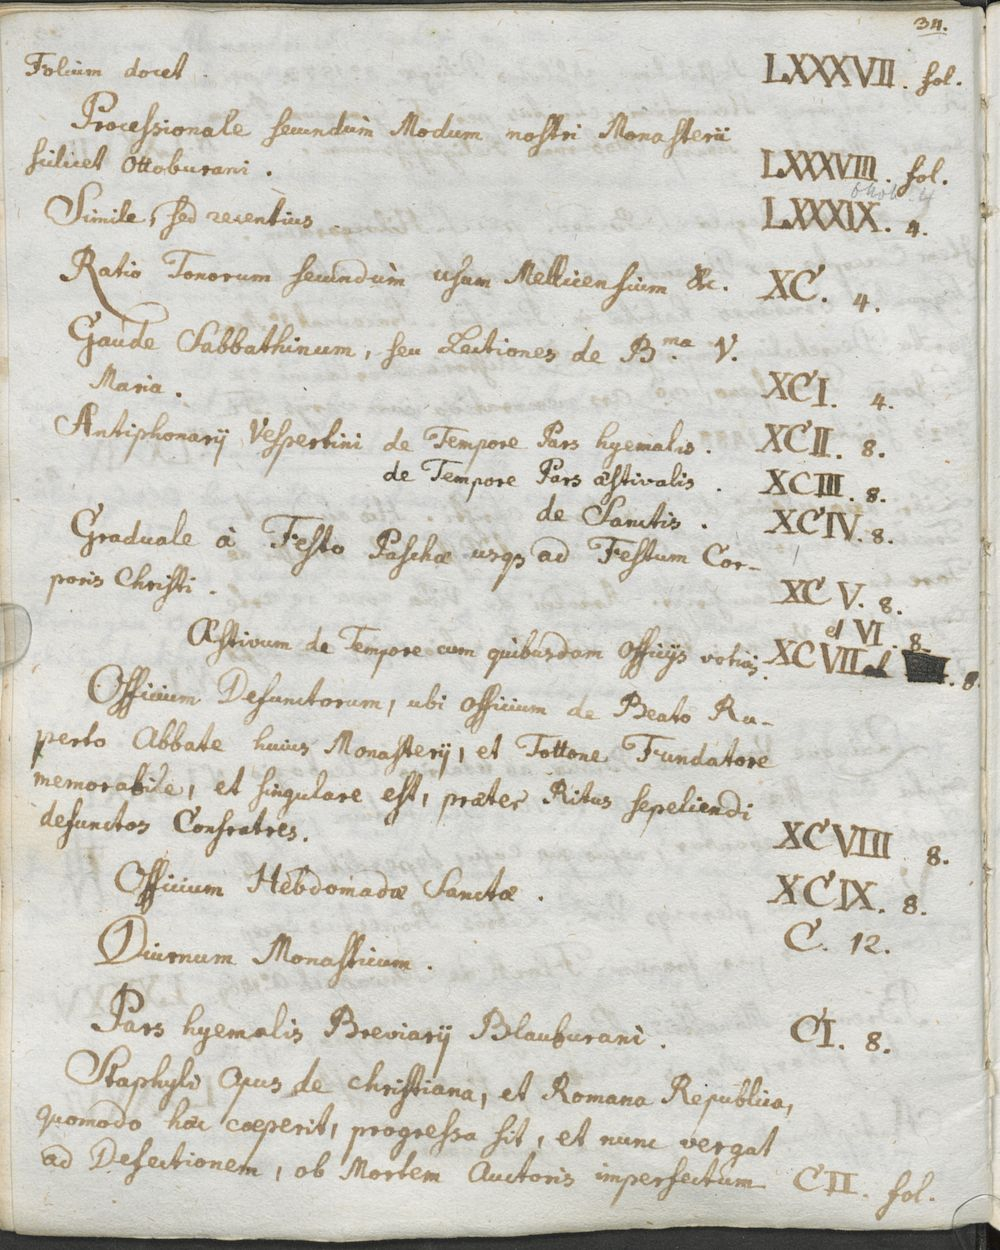 34.
Folium docet. LXXXVII. fol.
Processionale secundum Modum nostri Monasterii
scilicet Ottoburani. LXXXVIII. fol.
Simile, sed recentius LXXXIX. 4.
Ratio Tonorum secundùm usum Mellicensium &c. XC. 4.
Gaude Sabbathinum, seu Lectiones de B.ma V.
Maria. XCI. 4.
Antiphonarij Vespertini de Tempore Pars hyemalis. XCII. 8.
de Tempore Pars æstivalis. XCIII. 8.
de Sanctis. XCIV. 8.
Graduale à Festo Paschæ usqs ad Festum Cor-
poris Christi. XCV. 8.
et VI. 8.
Æstivum de Tempore cum quibusdam Officijs votivis. XCVII 8.
Officium Defunctorum, ubi officium de Beato Ru-
perto Abbate huius Monasterij, et Tottone Fundatore
memorabile, et singulare est, præter Ritus sepeliendi
defunctos Confratres. XCVIII 8.
Officium Hebdomadæ Sanctæ. XCIX. 8.
Diurnum Monasticum. C. 12.
Pars hyemalis Breviarij Blauburani. CI. 8.
Staphyli Opus de christiana, et Romana Republica,
quomodo hæc cœperit, progressa sit, et nunc vergat
ad Defectionem, ob Mortem Auctoris imperfectum CII. fol.